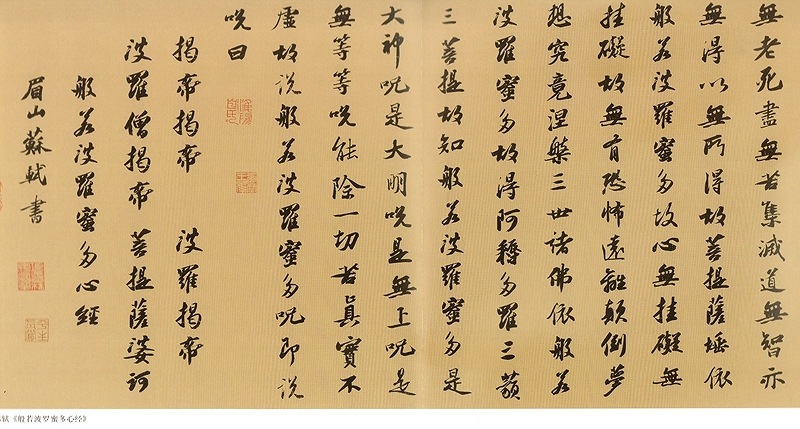 無老死盡無苦集滅道無智亦
無得以無所得故菩提薩埵依
般若波羅蜜多故心無挂礙無
挂礙故無有恐怖遠離顛倒夢
想究竟涅槃三世諸佛依般若
波羅蜜多故得阿耨多羅三藐
三菩提故知般若波羅蜜多是
大神呪是大明呪是無上呪是
無等等呪能除一切苦真實不
虛故說般若波羅蜜多呪即說
呪曰
揭帝揭帝 波羅揭帝
波羅僧揭帝 菩提薩婆訶
般若波羅蜜多心經
眉山蘇軾書
轼《般若波罗蜜多心经》